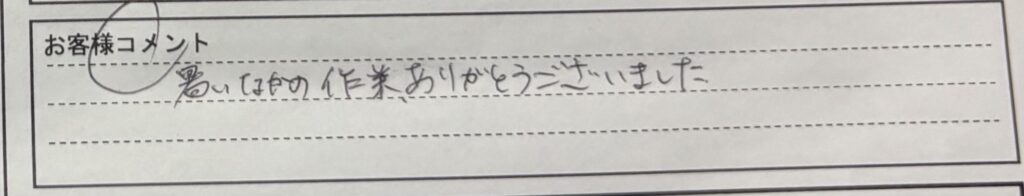 お客様コメント
暑いなかの作業、ありがとうございました